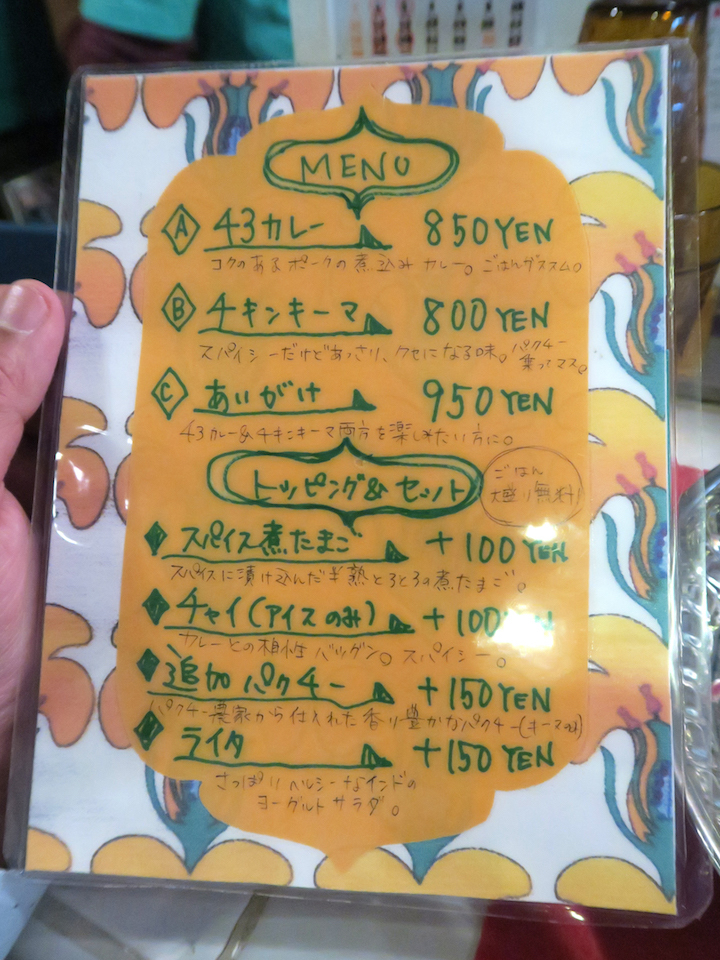 MENU
A 43カレー 850YEN
コクのあるポークの煮込みカレー。ごはんがススム。
B チキンキーマ 800YEN
スパイシーだけどあっさり、クセになる味。パクチー
乗ってマス。
C あいがけ 950YEN
43カレー&チキンキーマ両方を楽しみたい方に。
トッピング&セット
ごはん
大盛り無料!
スパイス煮たまご +100YEN
スパイスに漬け込んだ半熟とろとろの煮たまご。
チャイ(アイスのみ) +100YEN
カレーとの相性バツグン。スパイシー。
追加パクチー +150YEN
パクチー農家から仕入れた香り豊かなパクチー(キーマのみ)
ライタ +150YEN
さっぱりヘルシーなインドの
ヨーグルトサラダ。